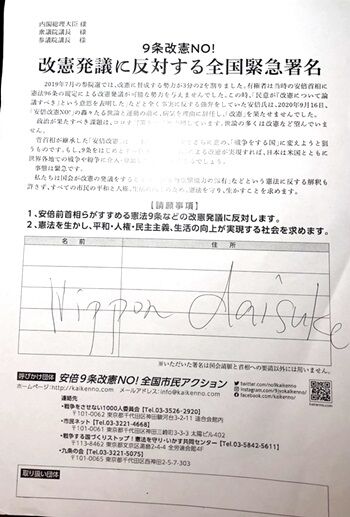 内閣総理大臣 様
衆議院議長 様
参議院議長 様
9条改憲NO!
改憲発議に反対する全国緊急署名
2019年7月の参院選では、改憲に賛成する勢力が3分の2を割りました。有権者は当時の安倍首相に
憲法96条の規定による改憲発議が可能な勢力を与えませんでした。この時、「民意が『改憲について論
議すべき』という意思を表明した」などと全く事実に反する強弁をしていた安倍氏は、2020年9月16日、
「安倍改憲NO!」の
政治が果たすべき課題は、コロナ
菅首相が継承した「安倍改憲
世界各地での戦争や紛争に
事態は急迫です。
私たちは国会が改憲の発議をすること
許さず、すべての市民の平和と人権
憲法を守り、生かすことを求めます。
【請願事項】
1、安倍前首相らがすすめる憲法9条などの改憲発議に反対します。
2、憲法を生かし、平和・人権・民主主義、生活の向上が実現する社会を求めます。
名 前 住 所
Nippon daisuke
※いただいた署名は国会請願と首相への要請以外には用いません。
呼びかけ団体 安倍9条改憲NO! 全国市民アクション
ホームページ:http://kaikenno.com メールアドレス:info@kaikenno.com
twitter.com/no9kaikenno
instagram.com/no9kaikenno
facebook.com/kaikenno
連絡先
・戦争をさせない1000人委員会【Tel.03-3526-2920】
〒101-0062 東京都千代田区神田駿河台3-2-11 連合会館内
・市民ネット【Tel.03-3221-4668】
〒101-0061 東京都千代田区神田三崎町3-3-3 太陽ビル402
・戦争する国づくりストップ!憲法を守り・いかす共同センター【Tel.03-5842-5611】
〒113-8462 東京都文京区湯島2-4-4 全労連会館4F
・九条の会【Tel.03-3221-5075】
〒101-0065 東京都千代田区西神田2-5-7-303
取り扱い団体